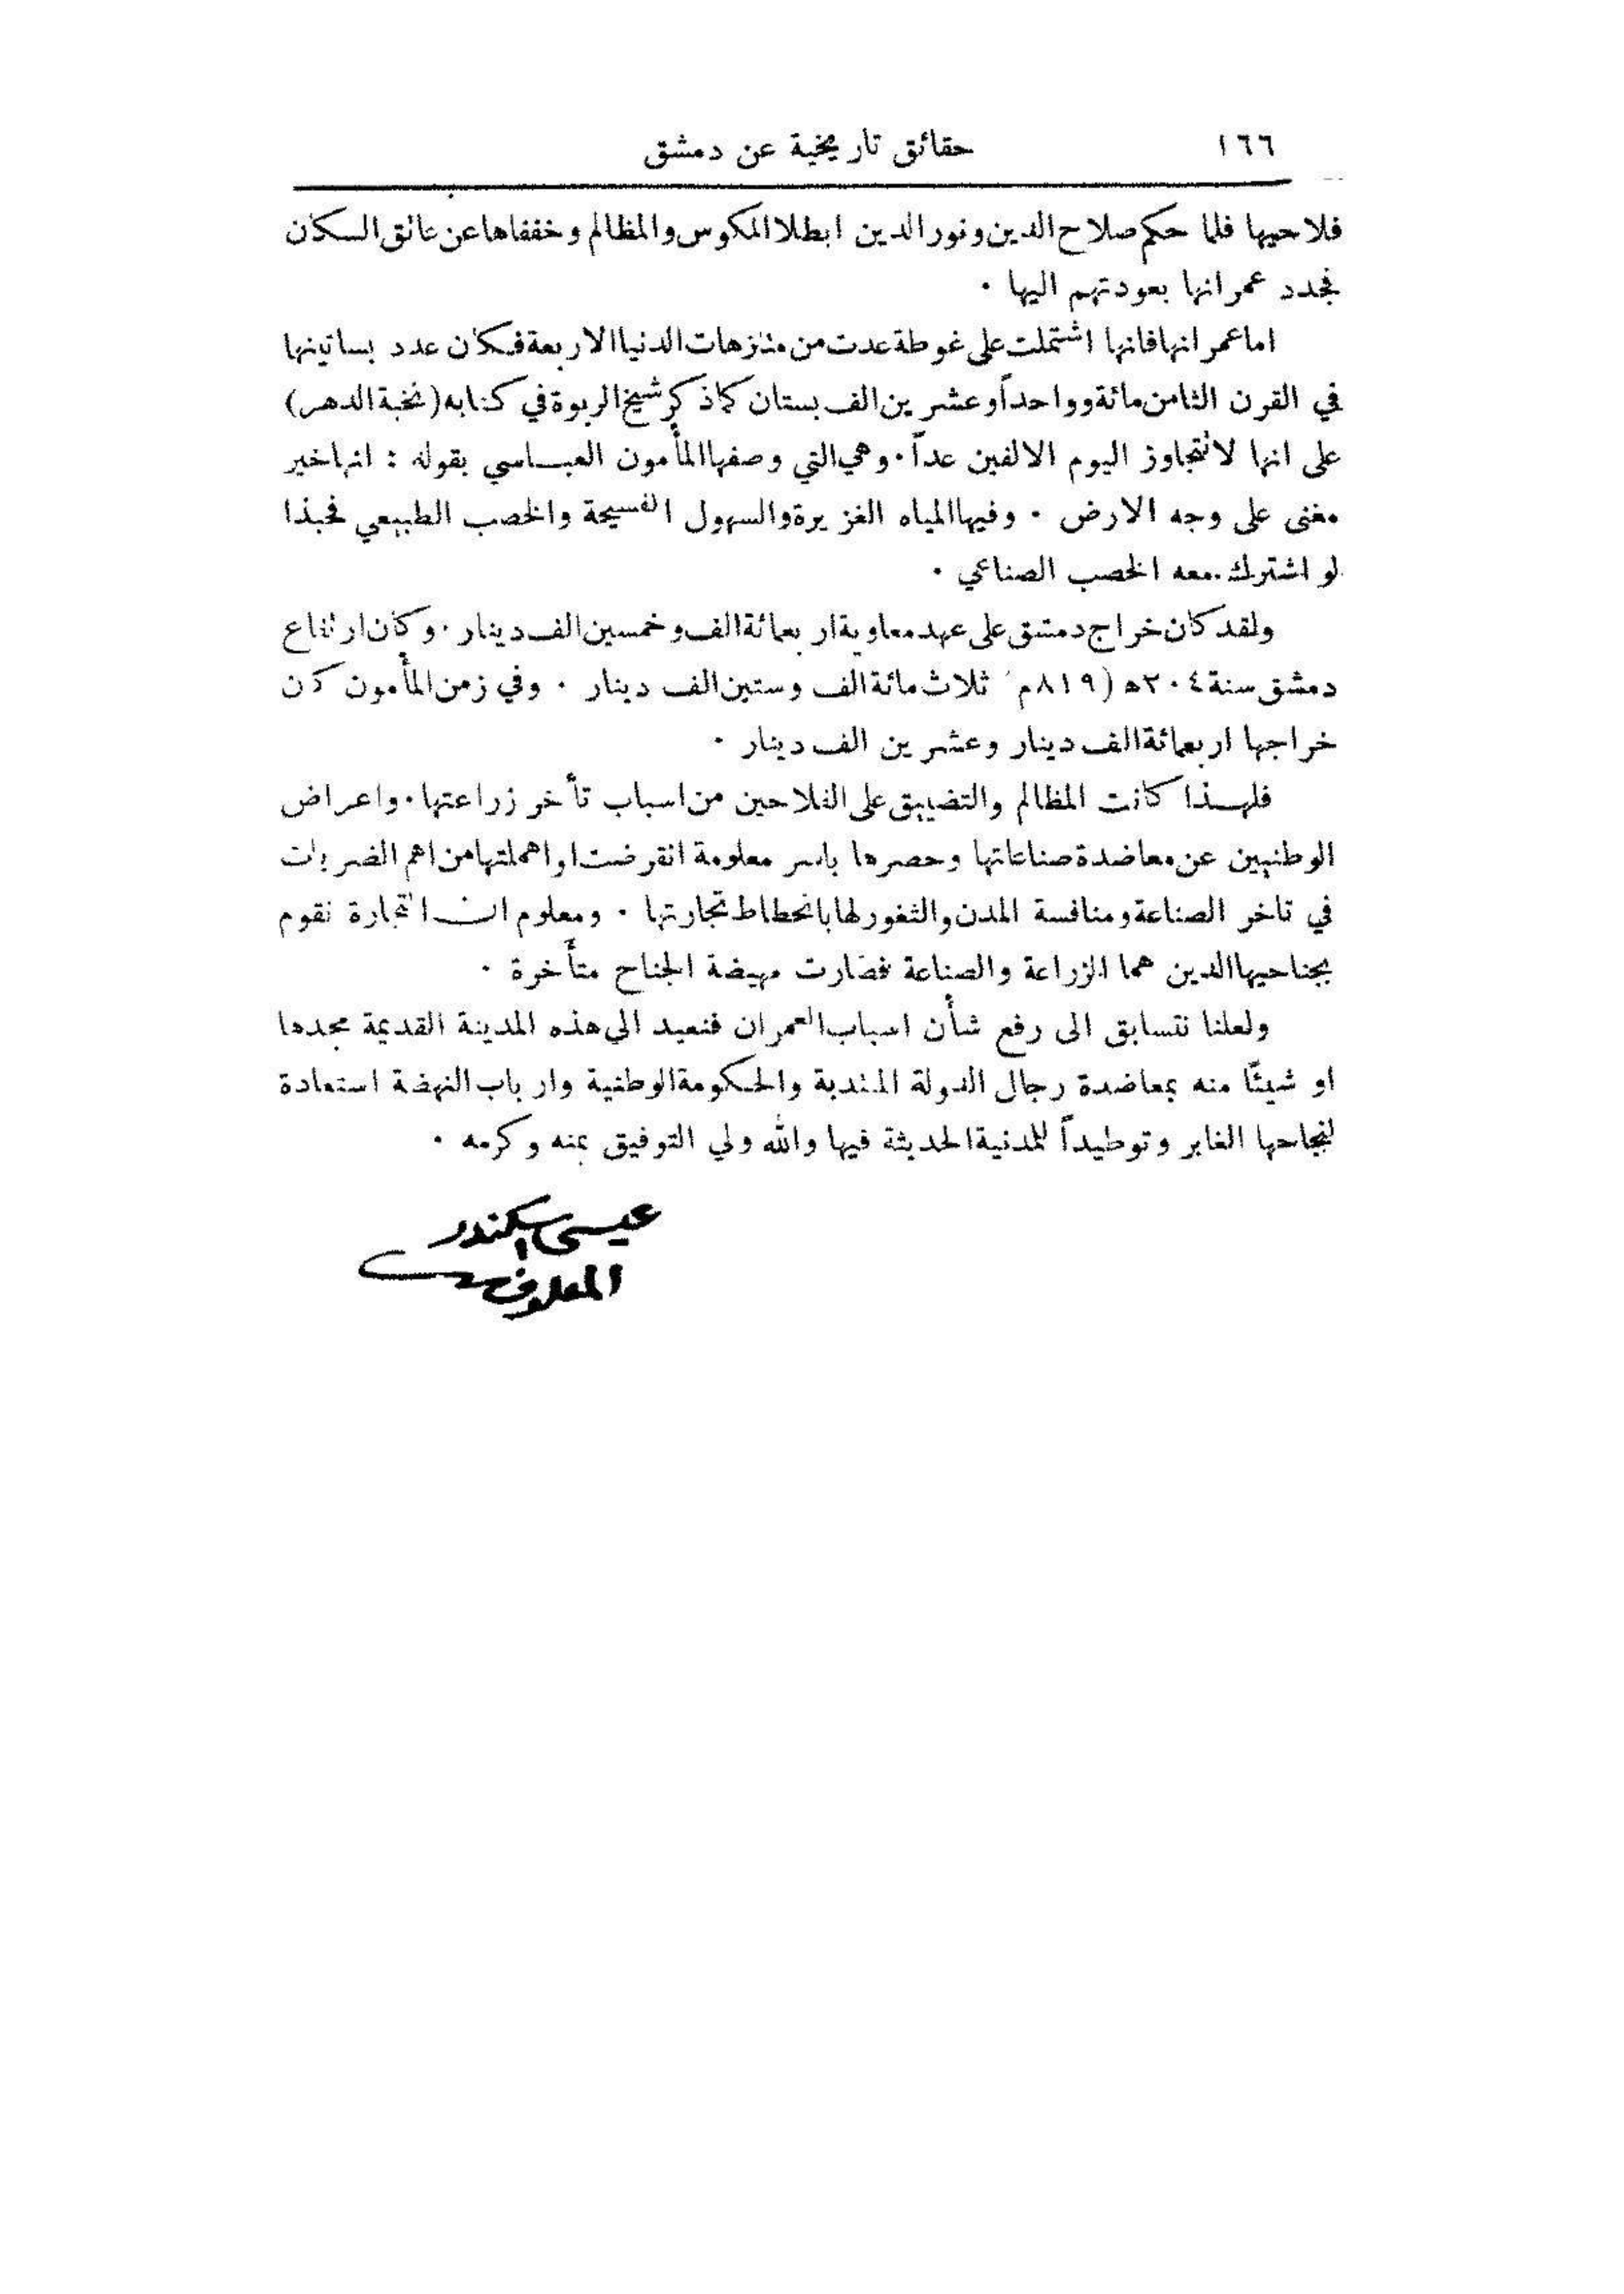 ١٦٦ حقائق تاريخية عن دمشق
فلاحيها فلما حكم صلاح الدين ونور الدين ابطلا المكوس والمظالم وخففاها عن عاتق السكان
فجدد عمرانها بعودتهم اليها .
اما عمرانها فانها اشتملت على غوطة عدت من متنزهات الدنيا الاربعة فكان عدد بساتينها
في القرن الثامن مائة وواحداً وعشرين الف بستان كما ذكر شيخ الربوة في كتابه (نخبة الدهر)
على انها لا تتجاوز اليوم الالفين عداً . وهي التي وصفها المأمون العباسي بقوله : انها خير
مغنى على وجه الارض . وفيها المياه الغزيرة والسهول الفسيحة والخصب الطبيعي فحبذا
لو اشترك معه الخصب الصناعي .
ولقد كان خراج دمشق على عهد معاوية اربعمائة الف وخمسين الف دينار . وكان ارتفاع
دمشق سنة ٢٠٤ ه (٨١٩ م ثلاث مائة الف وستين الف دينار . وفي زمن المأمون كان
خراجها اربعمائة الف دينار وعشرين الف دينار .
فلهذا كانت المظالم والتضييق على الفلاحين من اسباب تأخر زراعتها . واعراض
الوطنيين عن معاضدة صناعاتها وحصرها باسر معلومة انقرضت او اهملتها من اهم الضربات
في تاخر الصناعة ومنافسة المدن والثغور لها بانحطاط تجارتها . ومعلوم ان التجارة تقوم
بجناحيها الذين هما الزراعة والصناعة فصارت مهيضة الجناح متأخرة .
ولعلنا نتسابق الى رفع شأن اسباب العمران فنعيد الى هذه المدينة القديمة مجدها
او شيئًا منه بمعاضدة رجال الدولة المنتدبة والحكومة الوطنية وارباب النهضة استعادة
لنجاحها الغابر وتوطيداً للمدنية الحديثة فيها والله ولي التوفيق بمنه وكرمه .
عيسى اسكندر
المعلوف